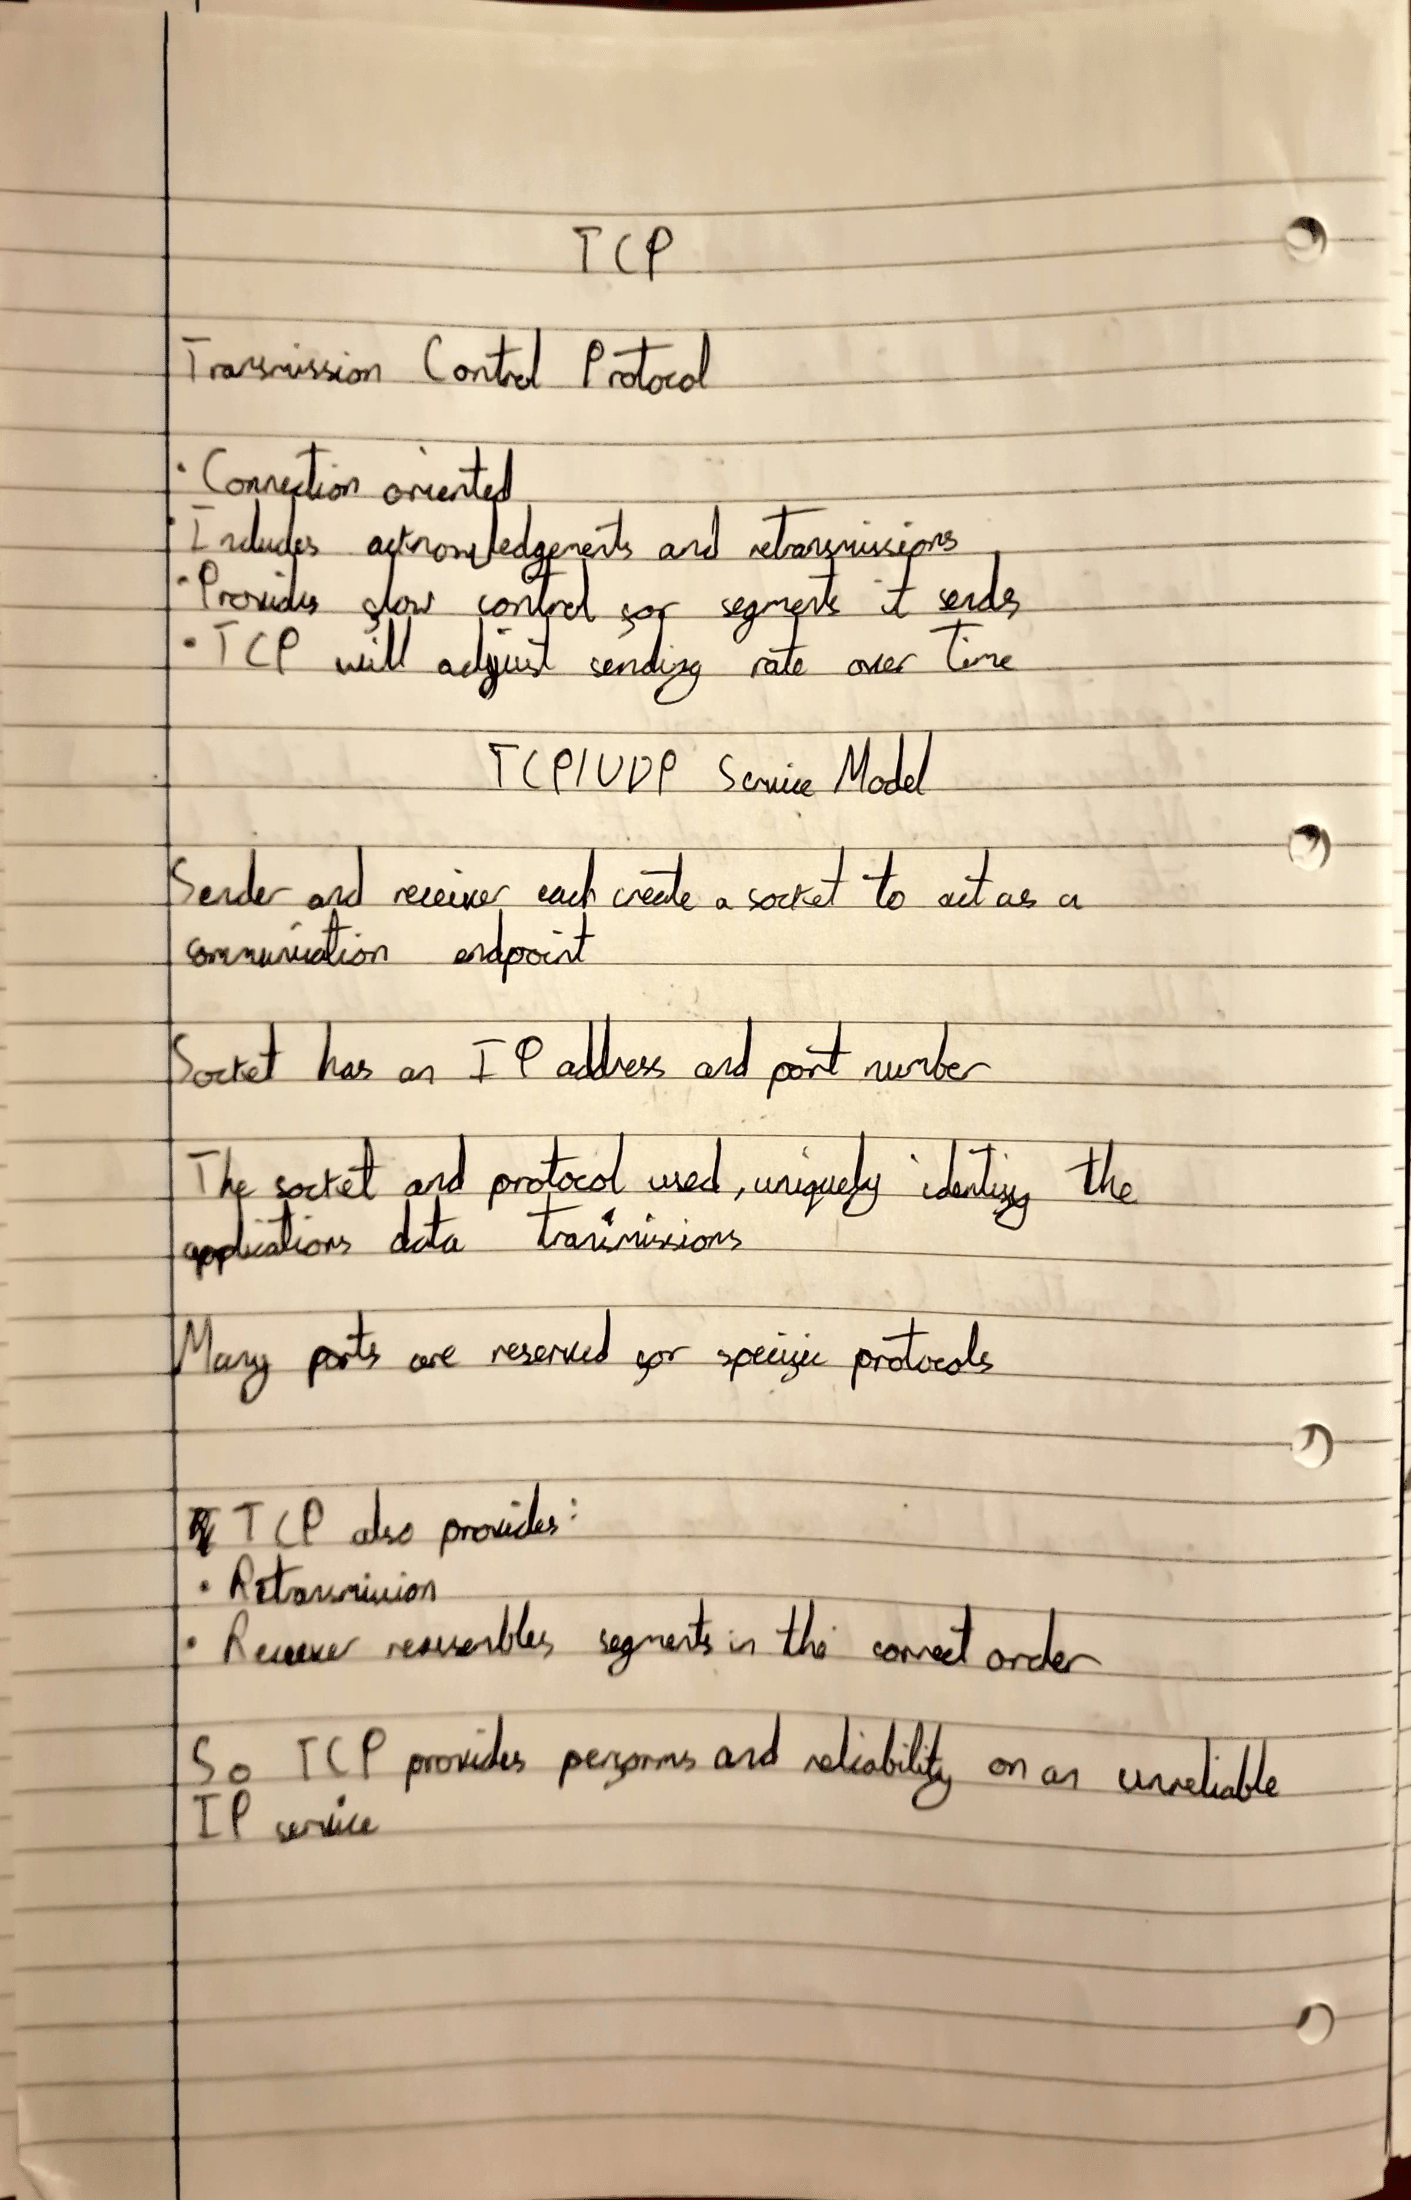 TCP
Transmission Control Protocol
• Connection oriented
• Includes acknowledgements and retransmissions
• Provides flow control for segments it sends
• TCP will adjust sending rate over time
TCP/UDP Service Model
Sender and receiver each create a socket to act as a
communication endpoint
Socket has an IP address and port number
The socket and protocol used, uniquely identify the
applications data transmissions
Many ports are reserved for specific protocols
TCP also provides:
• Retransmission
• Receiver reassembles segments in the correct order
So TCP provides performs and reliability on an unreliable
IP service